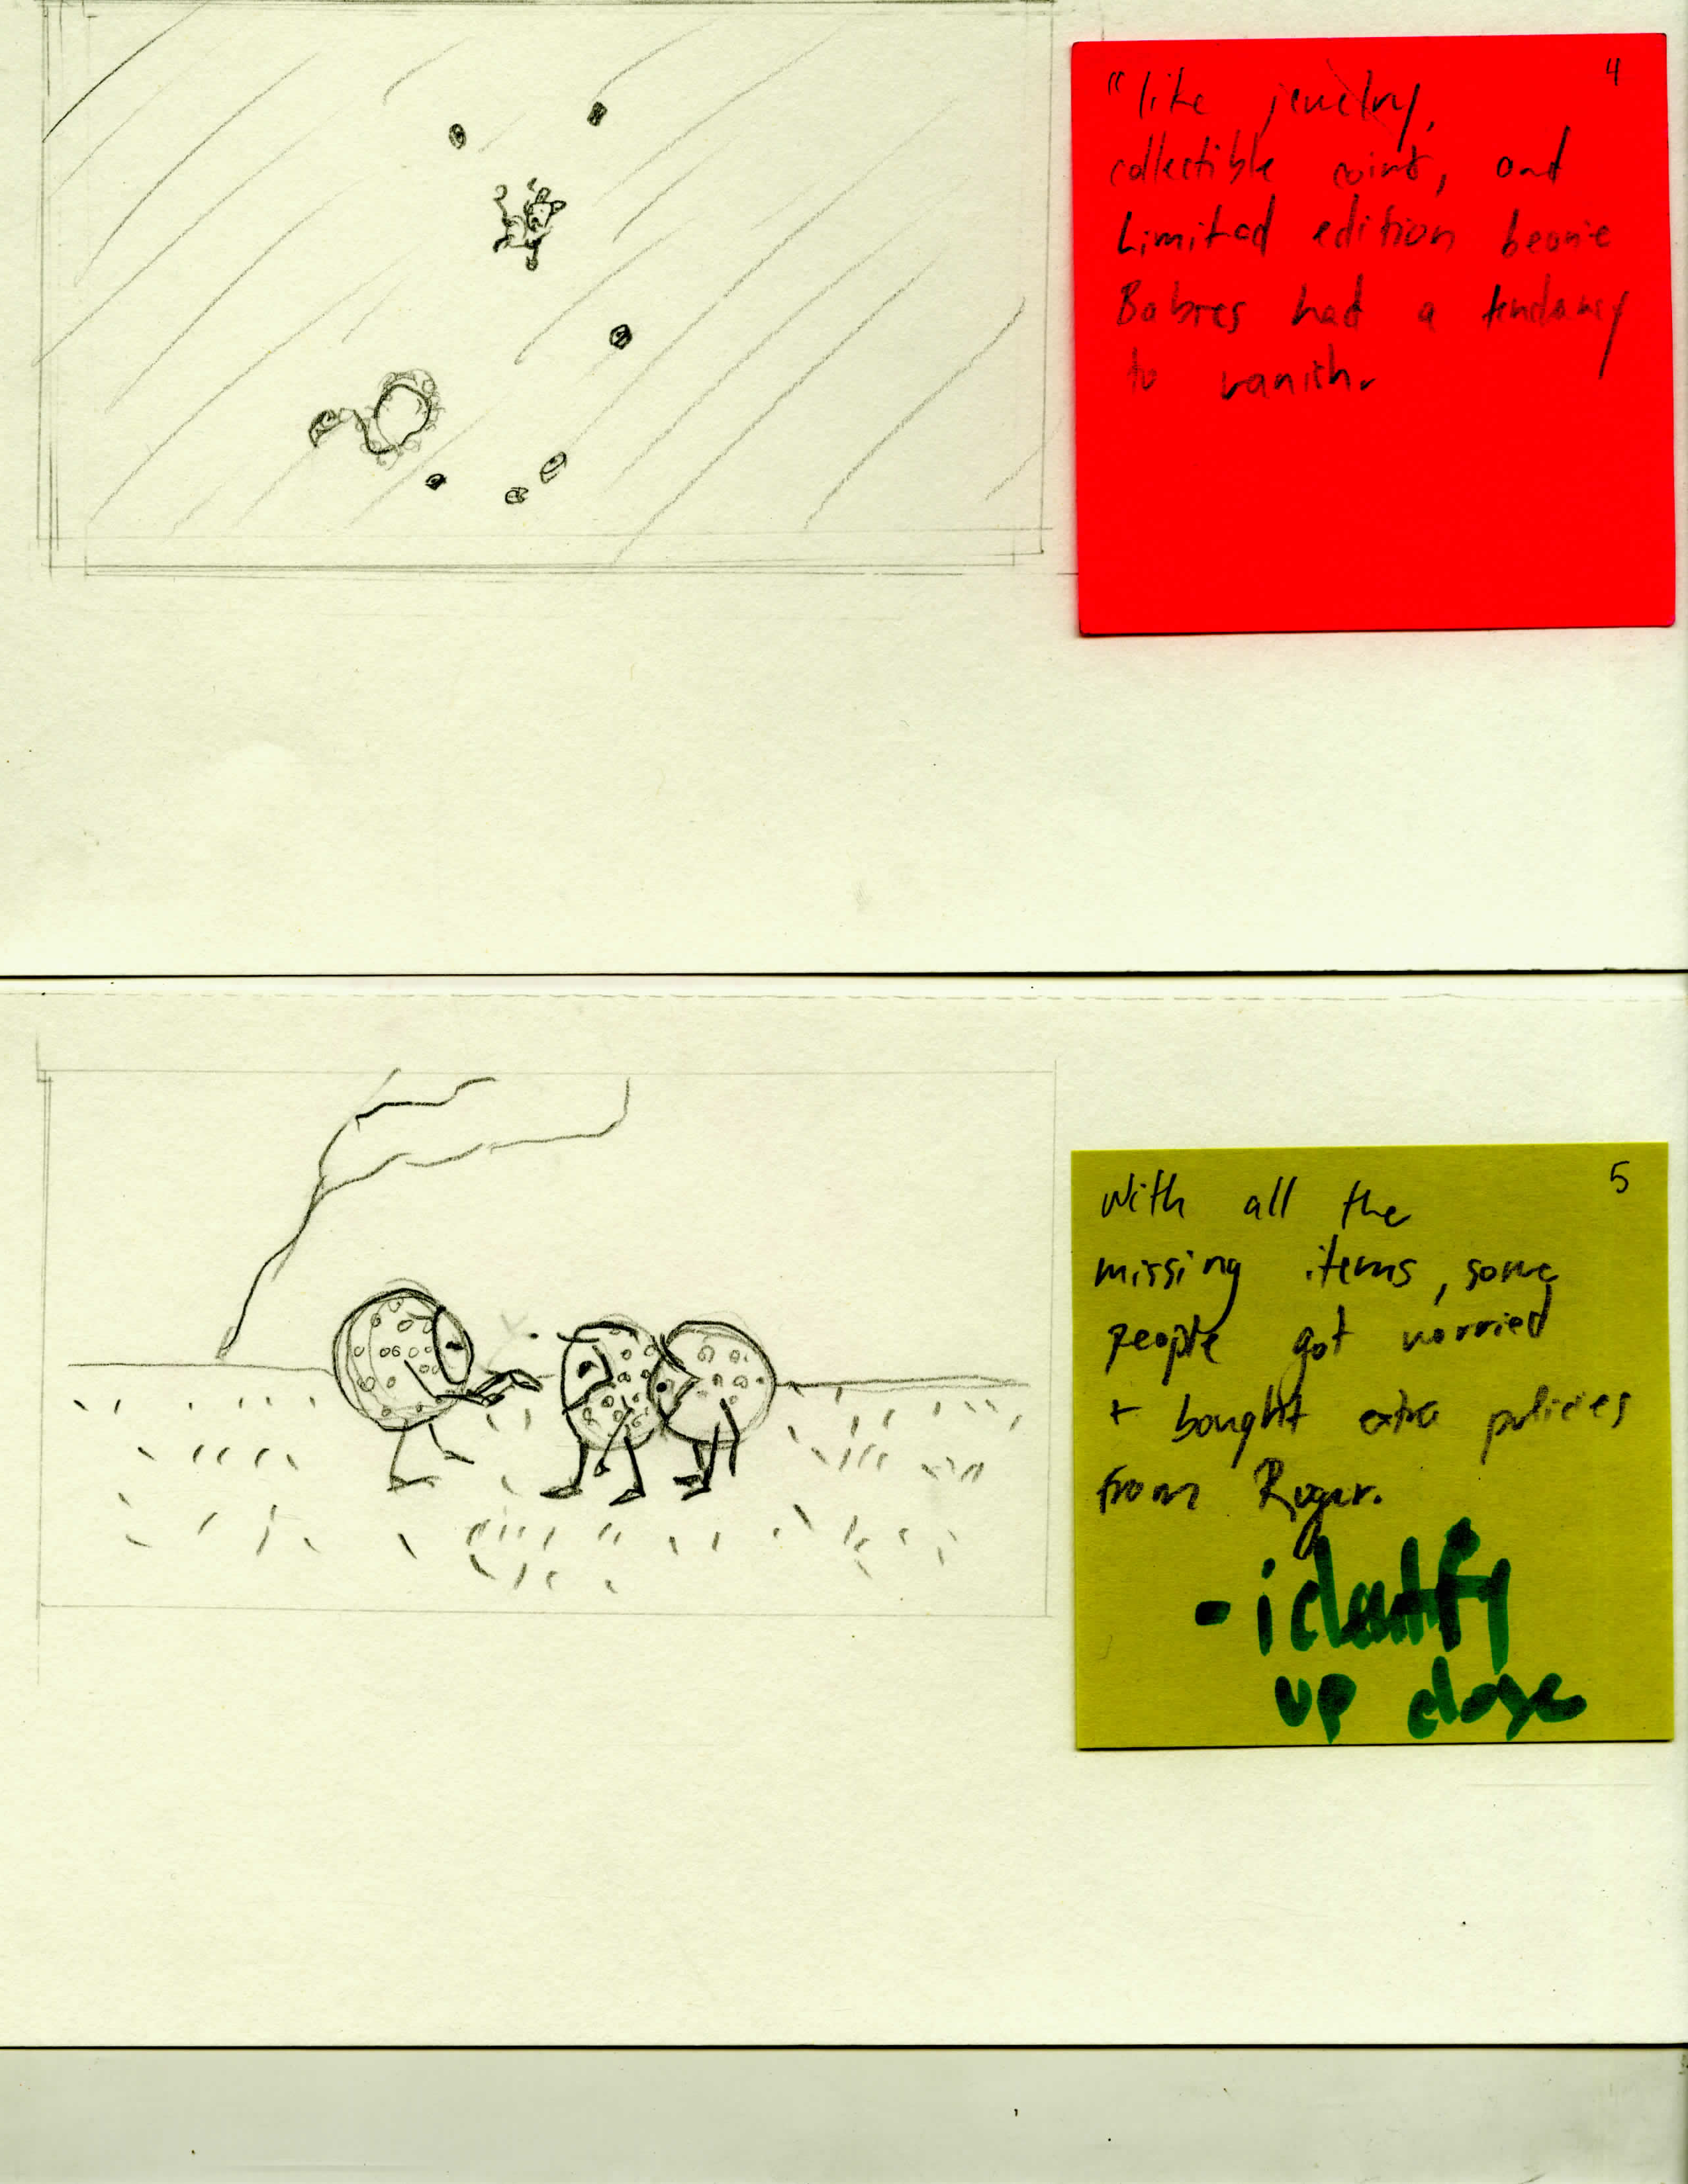 4
"like jewelry,
collectible coins, and
Limited edition beanie
Babies had a tendancy
to vanish.
5
With all the
missing items, some
people got worried
+ bought extra policies
from Roger.
- identify
up close